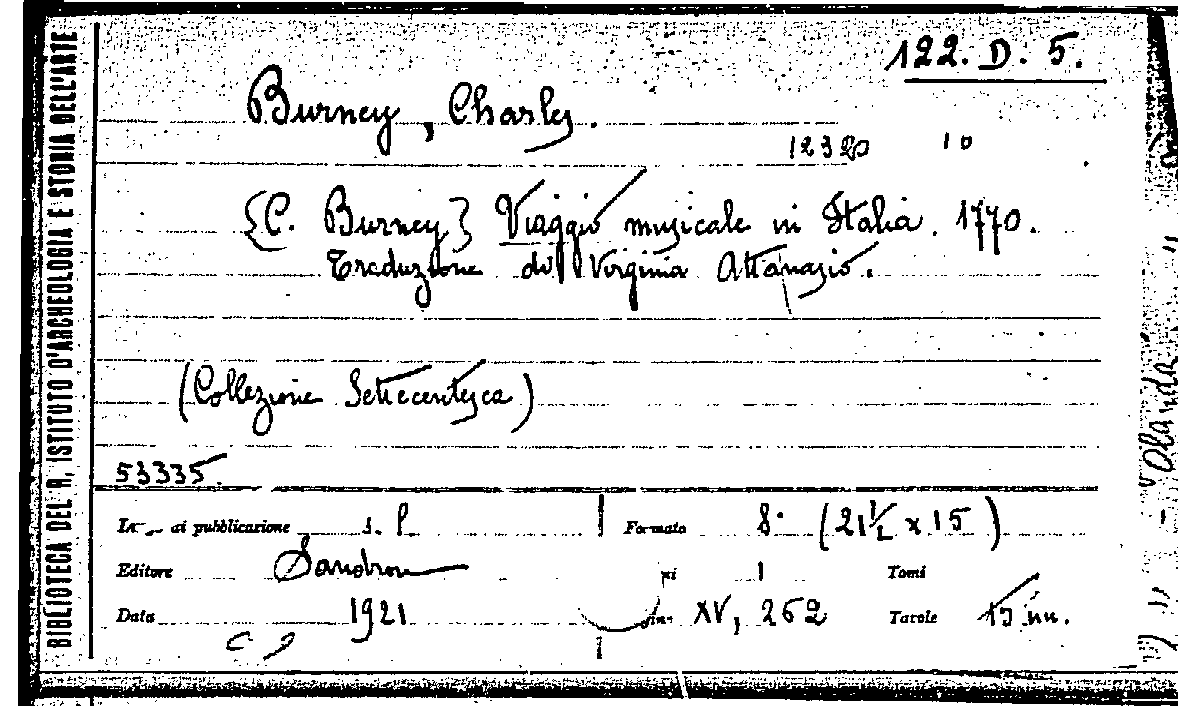 BIBLIOTECA DEL R. ISTITUTO D'ARCHEOLOGIA E STORIA DELL'ARTE
122. D. 5.
Burney, Charles.
12320 10
{C. Burney} Viaggio musicale in Italia. 1770.
Traduzione di Virginia Attanasio.
(Collezione Settecentesca)
53335.
di pubblicazione s. l. Formato 8° (21 1/2 x 15)
Editore Sandron 1 Tomi
Data 1921 XV, 262 Tavole 15 nn.
Olanda